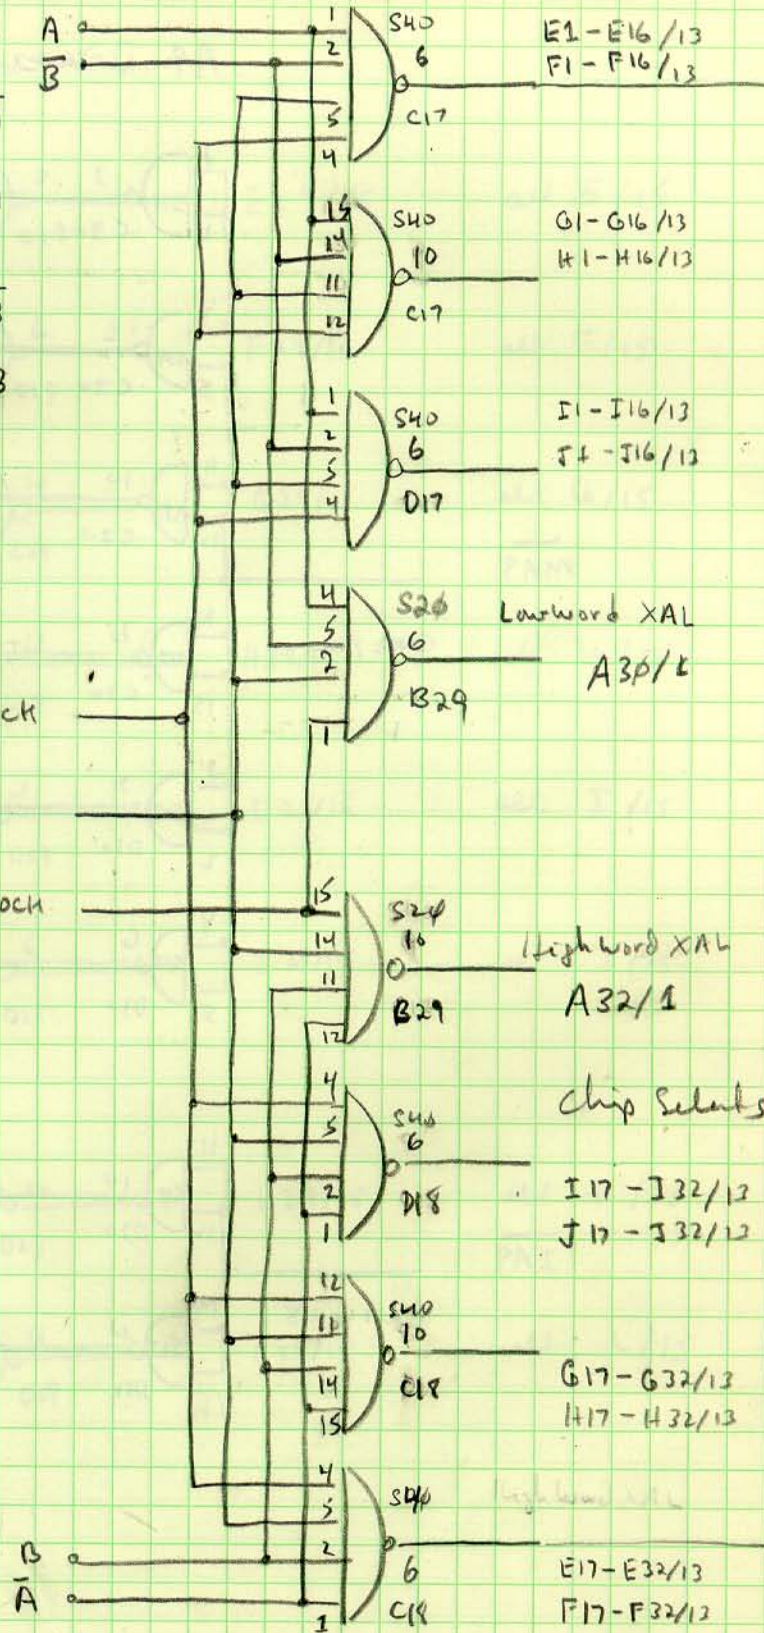 A
B̅
1
2
5
4
S40
6
C17
E1-E16/13
F1-F16/13
15
14
11
12
S40
10
C17
G1-G16/13
H1-H16/13
1
2
5
4
S40
6
D17
I1-I16/13
J1-J16/13
4
5
2
1
S20
6
B29
Lowword XAL
A30/1
CK
OCK
15
14
11
12
S20
10
B29
Highword XAL
A32/1
4
5
2
1
S40
6
D18
Chip Selects
I17-I32/13
J17-J32/13
12
11
14
15
S40
10
C18
G17-G32/13
H17-H32/13
4
5
2
1
S40
6
C18
B
A̅
E17-E32/13
F17-F32/13